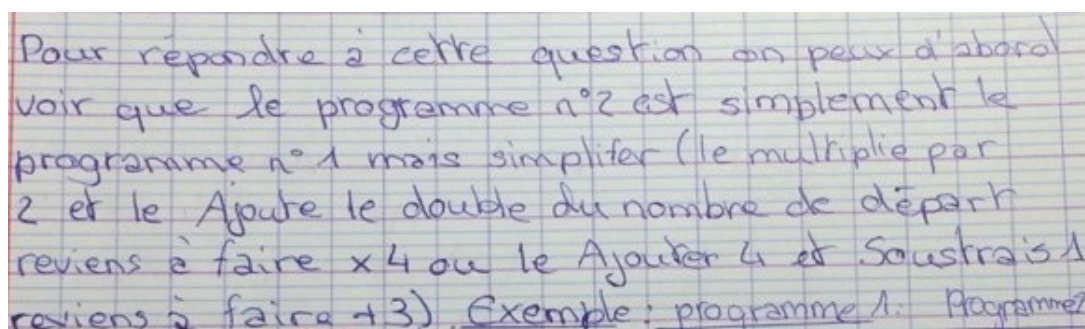 Pour répondre à cette question on peux d'abord
voir que le programme n°2 est simplement le
programme n°1 mais simplifer (le multiplie par
2 et le Ajoute le double du nombre de départ
reviens à faire x4 ou le Ajouter 4 et Soustrais 1
reviens à faire +3) Exemple : programme 1: Programme2